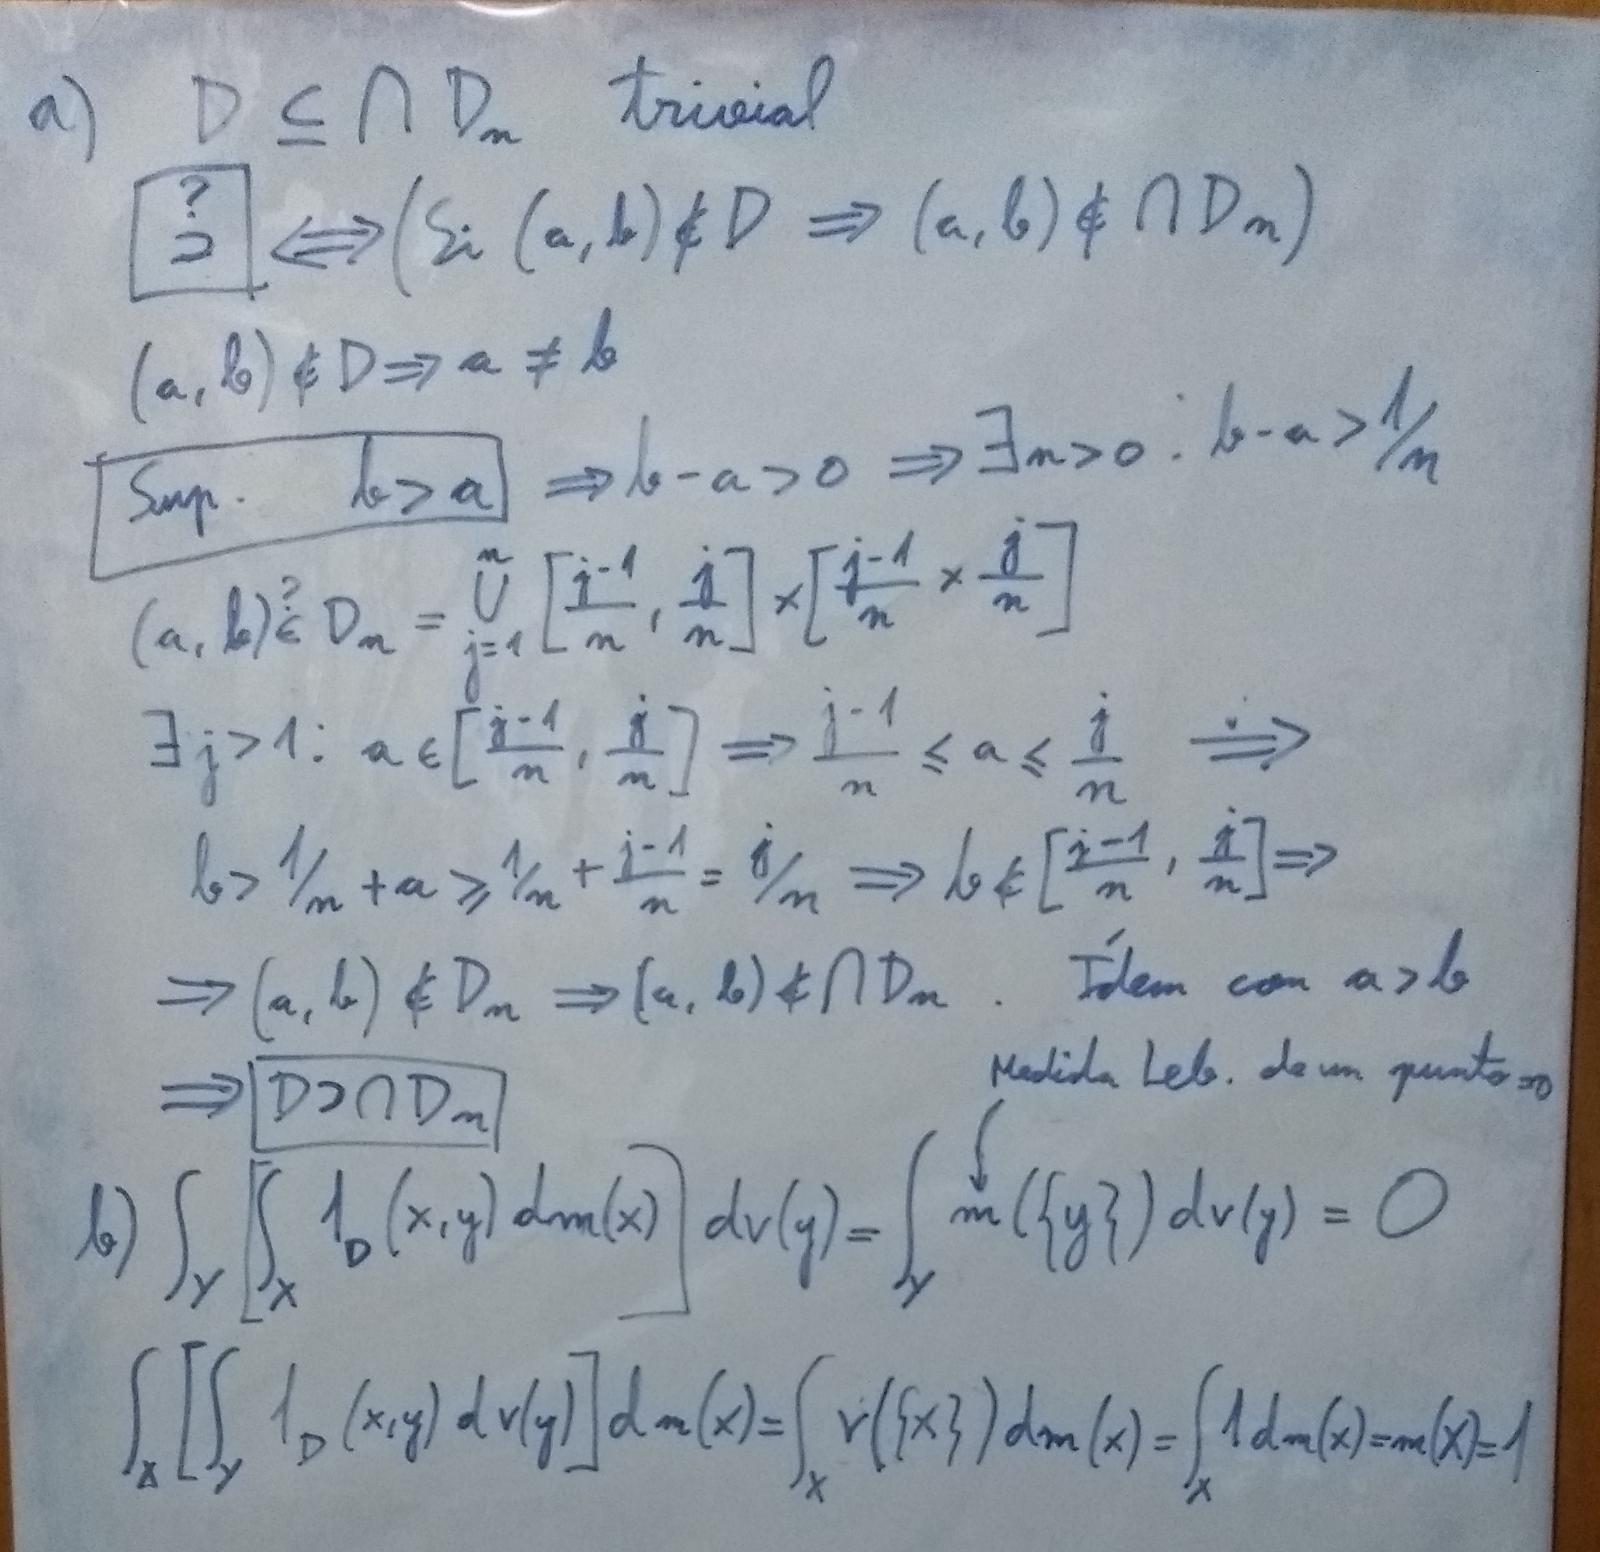 a) D ⊆ ∩ D_n trivial
? ⊃ ⟺ (Si (a, b) ∉ D ⟹ (a, b) ∉ ∩ D_n)
(a, b) ∉ D ⟹ a ≠ b
Sup. b > a ⟹ b - a > 0 ⟹ ∃ n > 0 : b - a > 1/n
(a, b) ∈? D_n = ∪_{j=1}^{n} [(j-1)/n, j/n] × [(j-1)/n × j/n]
∃ j > 1 : a ∈ [(j-1)/n, j/n] ⟹ (j-1)/n ≤ a ≤ j/n ⟹
b > 1/n + a ≥ 1/n + (j-1)/n = j/n ⟹ b ∉ [(j-1)/n, j/n] ⟹
⟹ (a, b) ∉ D_n ⟹ (a, b) ∉ ∩ D_n . Ídem con a > b
⟹ D ⊃ ∩ D_n
Medida Leb. de un punto = 0
b) ∫_Y [∫_X 1_D (x, y) dm(x)] dν(y) = ∫_Y m({y}) dν(y) = 0
∫_X [∫_Y 1_D (x, y) dν(y)] dm(x) = ∫_X ν({x}) dm(x) = ∫_X 1 dm(x) = m(X) = 1